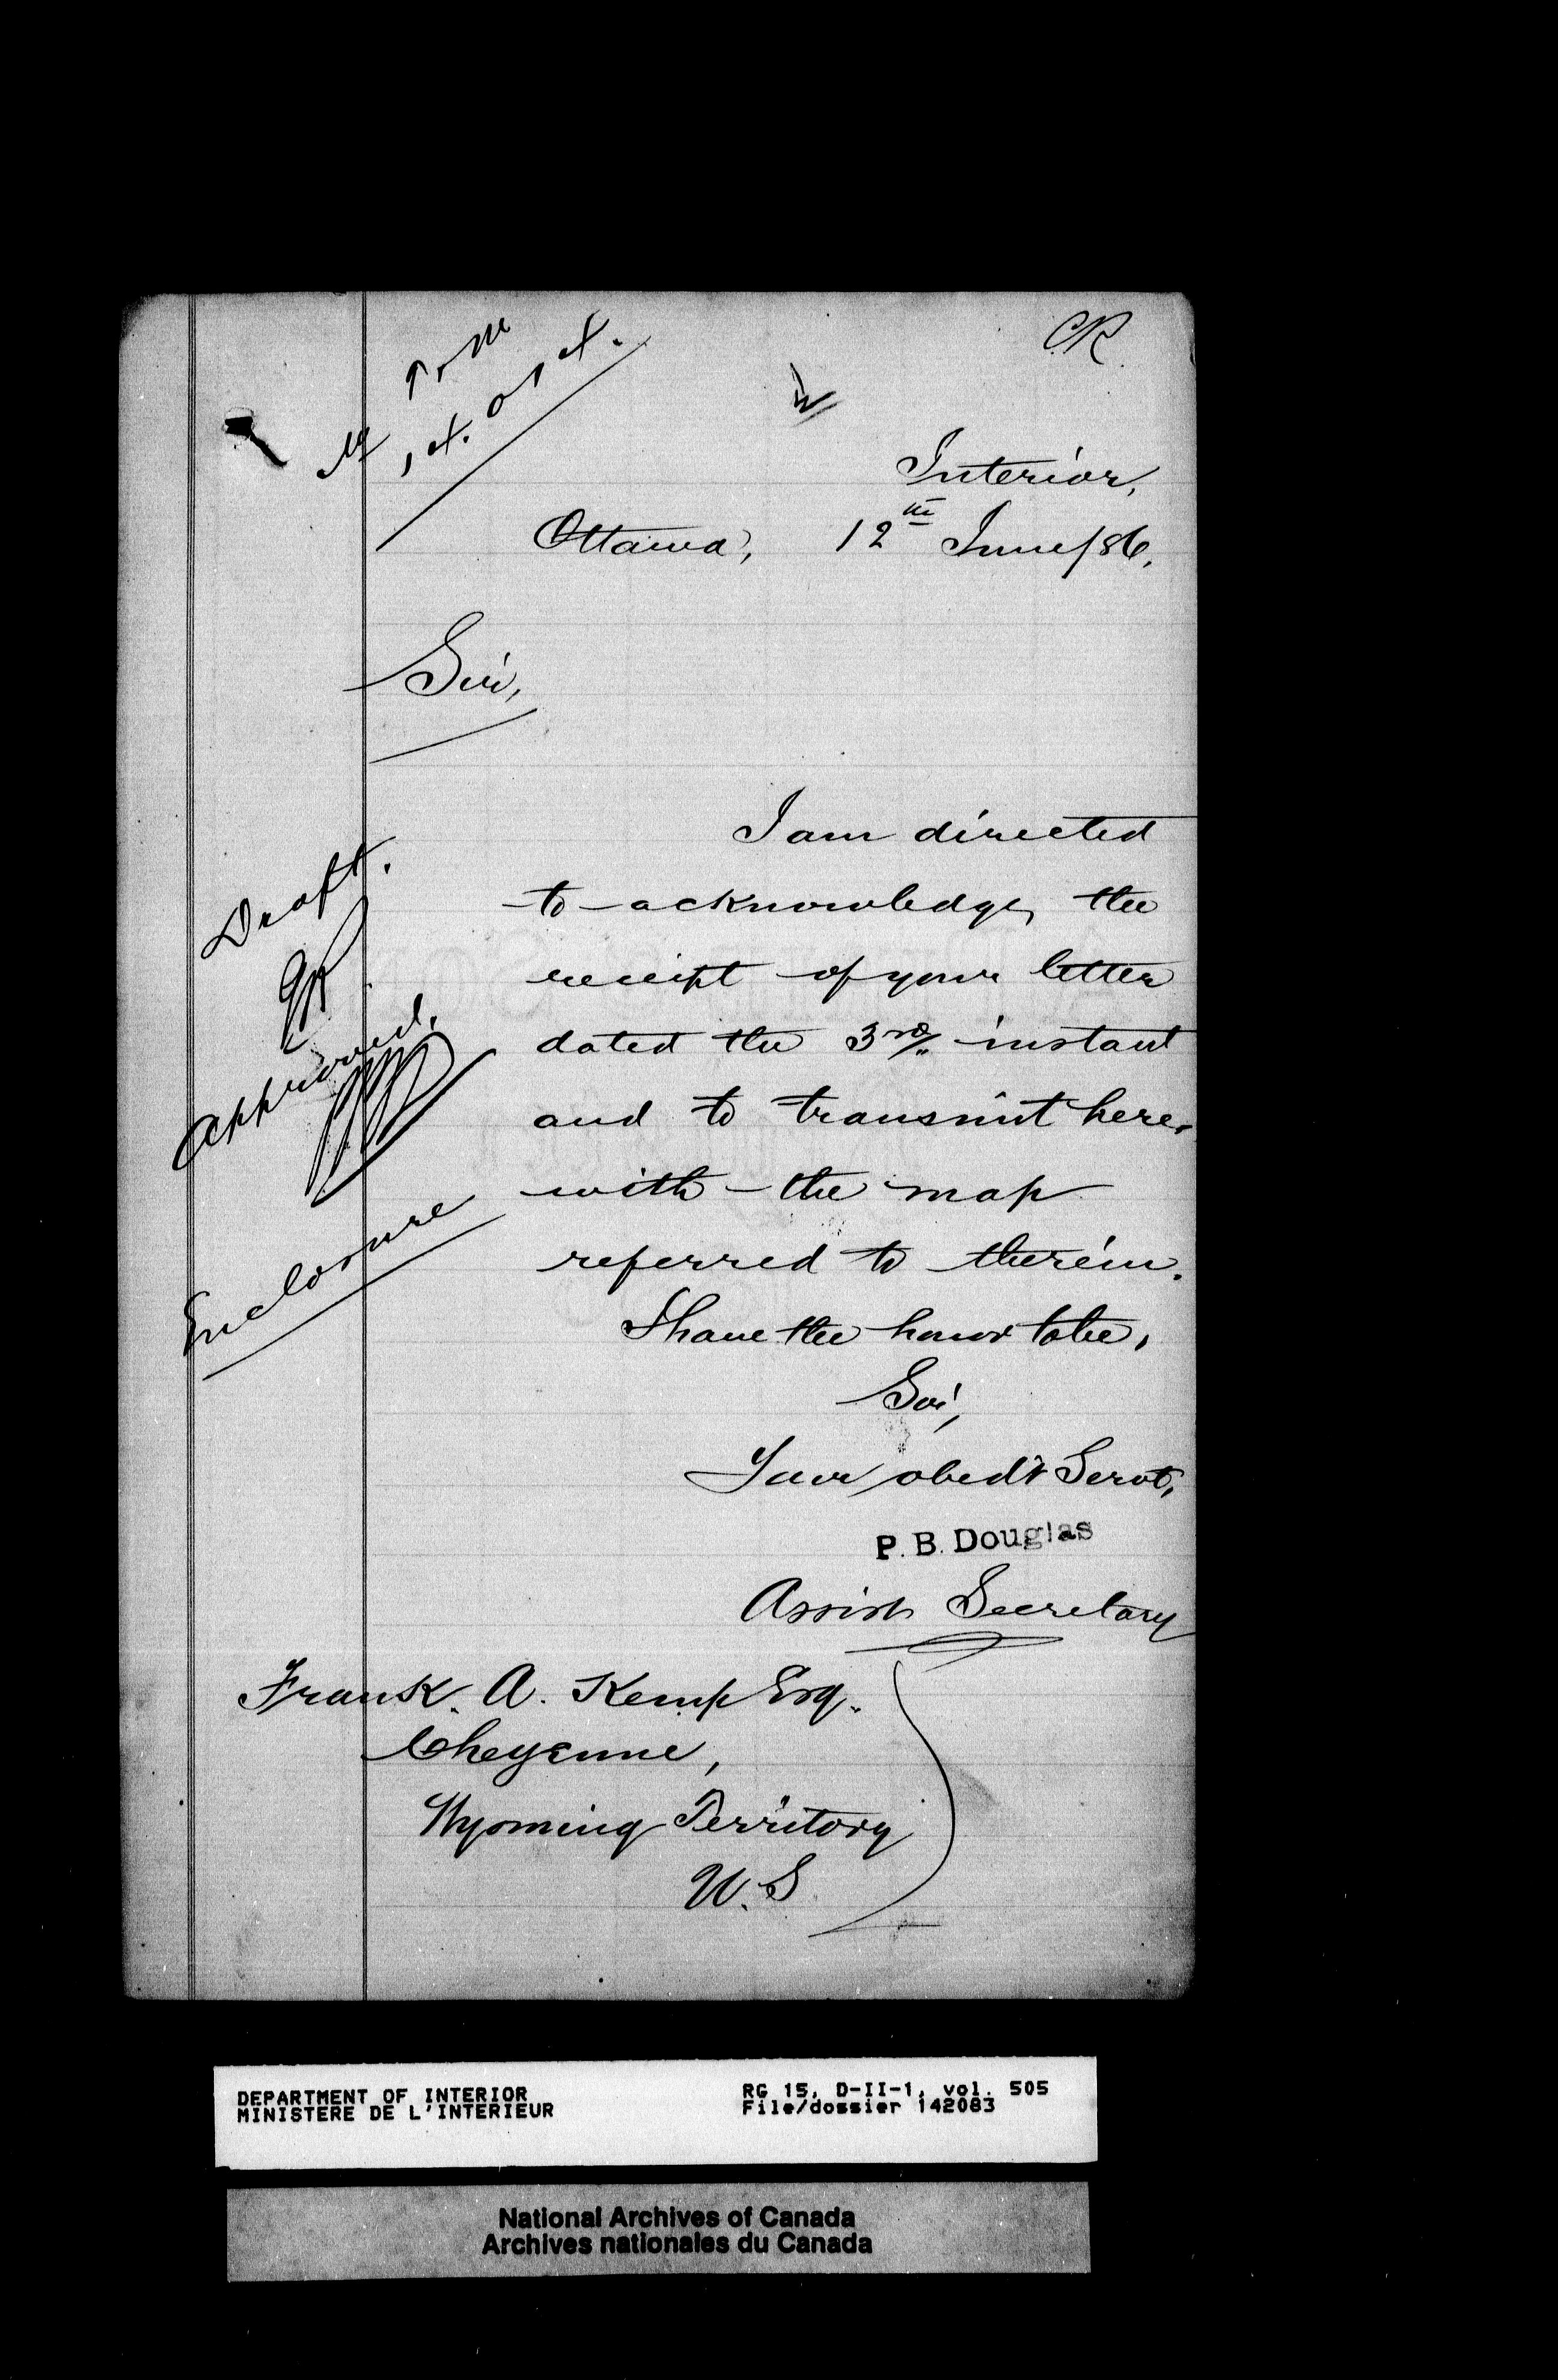 CR
Interior,
Ottawa, 12th June/86.
Sir,
I am directed
to acknowledge the
receipt of your letter
dated the 3rd instant
and to transmit here-
with the map
referred to therein.
I have the honor to be,
Sir,
Your obedt Servt,
P. B. Douglas
Assist Secretary
Draft.
Approved.
Enclosure
Frank. A. Kemp Esq.
Cheyenne,
Wyoming Territory
U.S
DEPARTMENT OF INTERIOR
MINISTERE DE L'INTERIEUR
RG 15, D-II-1, vol. 505
File/dossier 142083
National Archives of Canada
Archives nationales du Canada